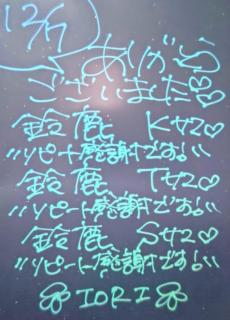 12/7
ありがとう
ございました♡
鈴鹿 K42♡
〃リピート感謝です!〃
鈴鹿 T42♡
〃リピート感謝です!〃
鈴鹿 S42♡
〃リピート感謝です!〃
IORI